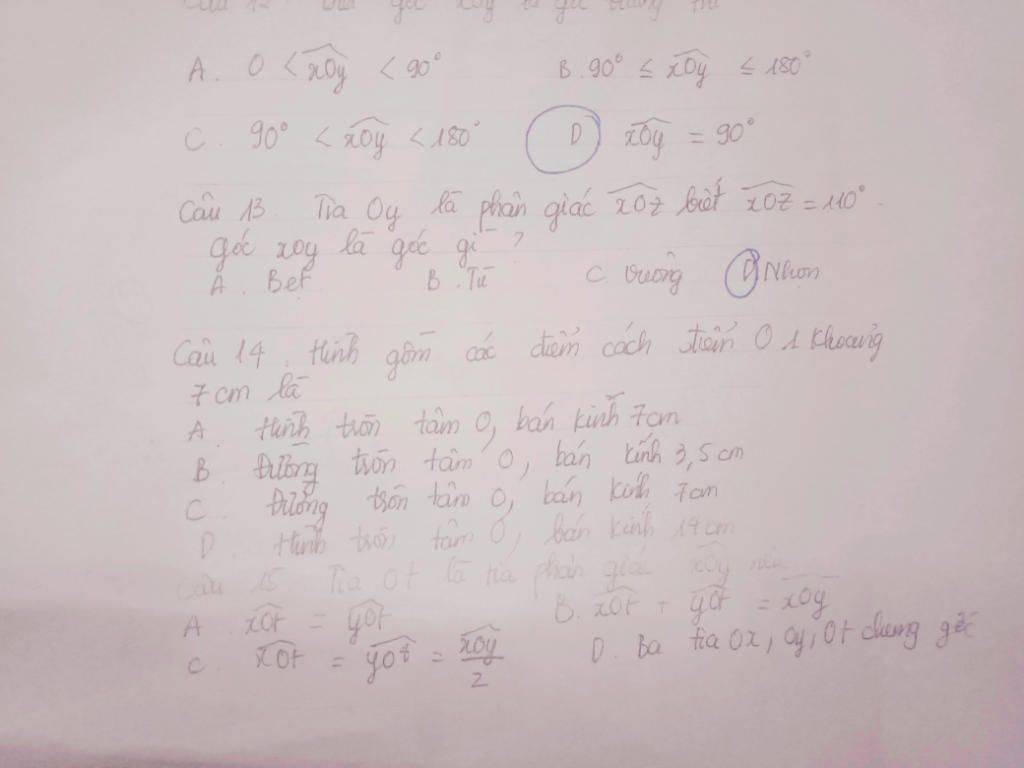 Câu 12 góc xOy là góc vuông thì
A. 0 < xOy < 90°
B. 90° ≤ xOy ≤ 180°
C. 90° < xOy < 180°
D xOy = 90°
Câu 13. Tia Oy là phân giác xOz biết xOz = 110°.
góc xoy là góc gì ?
A. Bẹt B. Tù C. Vuông D Nhọn
Câu 14. Hình gồm các điểm cách điểm O 1 khoảng
7cm là
A. Hình tròn tâm O, bán kính 7cm
B. Đường tròn tâm O, bán kính 3,5cm
C. Đường tròn tâm O, bán kính 7cm
D. Hình tròn tâm O, bán kính 14cm
Câu 15 Tia Ot là tia phân giác xOy nếu
A. xOt = yOt
B. xOt + yOt = xOy
C. xOt = yOt = xOy/2
D. Ba tia Ox, Oy, Ot chung gốc